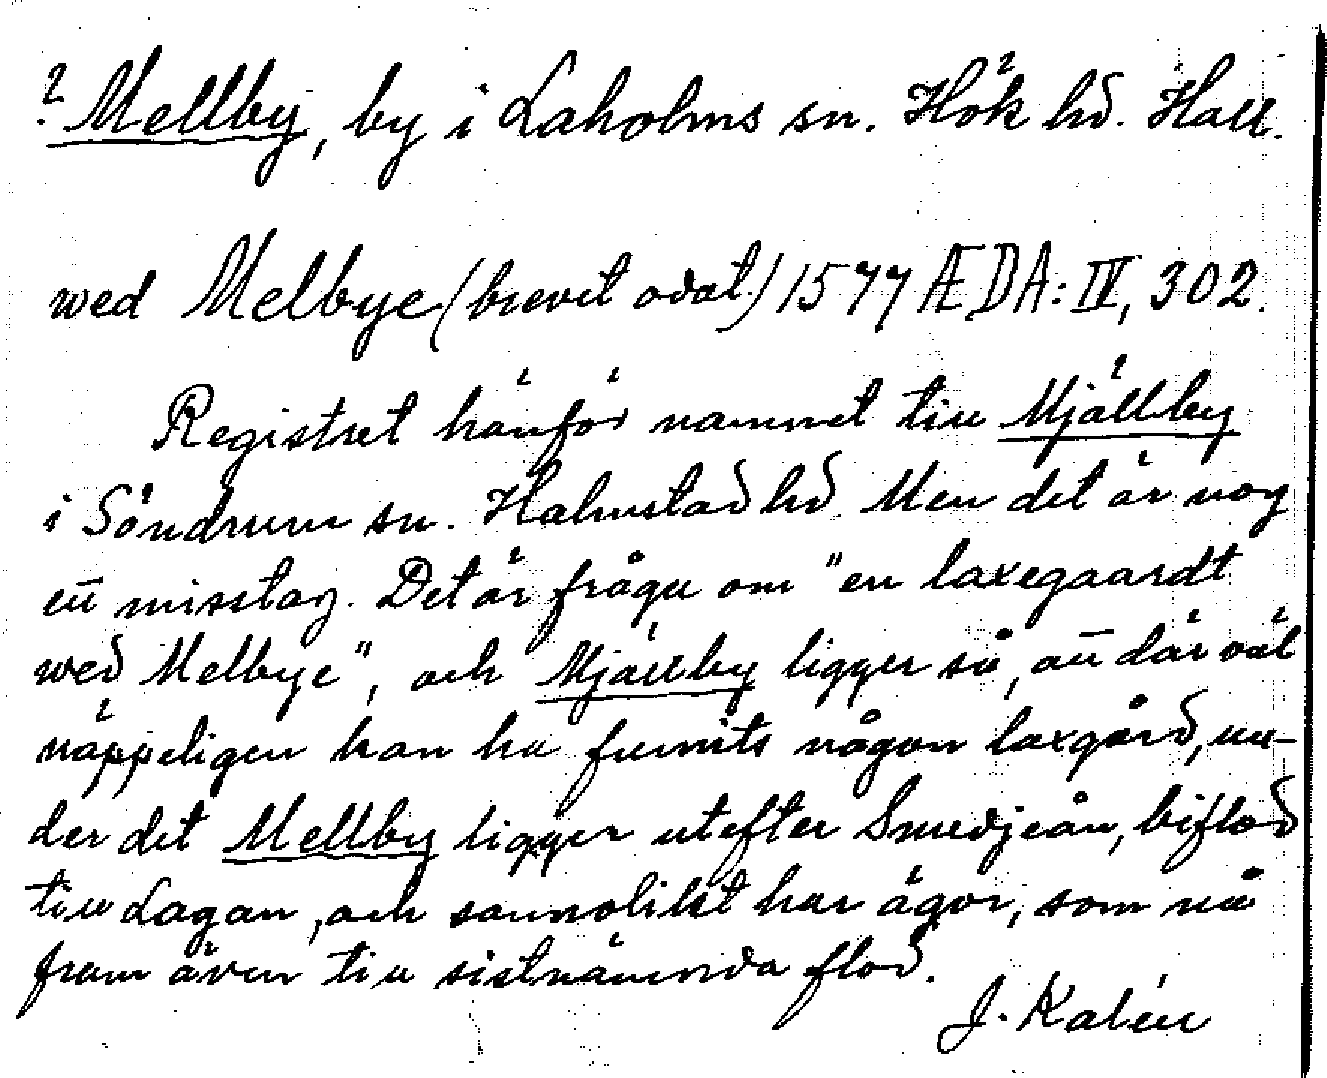 ? Mellby, by i Laholms sn. Hök hd. Hall.
wed Melbye (brevet odat.) 1577 ÆDA: IV, 302.
Registret hänför namnet till Mjällby
i Söndrum sn. Halmstad hd. Men det är nog
ett misstag. Det är fråga om "en laxegaardt
wed Melbye", och Mjällby ligger så, att där väl
näppeligen kan ha funnits någon laxgård, un-
der det Mellby ligger utefter Smedjeån, biflod
till Lagan, och sannolikt har ägor, som nå
fram även till sistnämnda flod.
J. Kalén